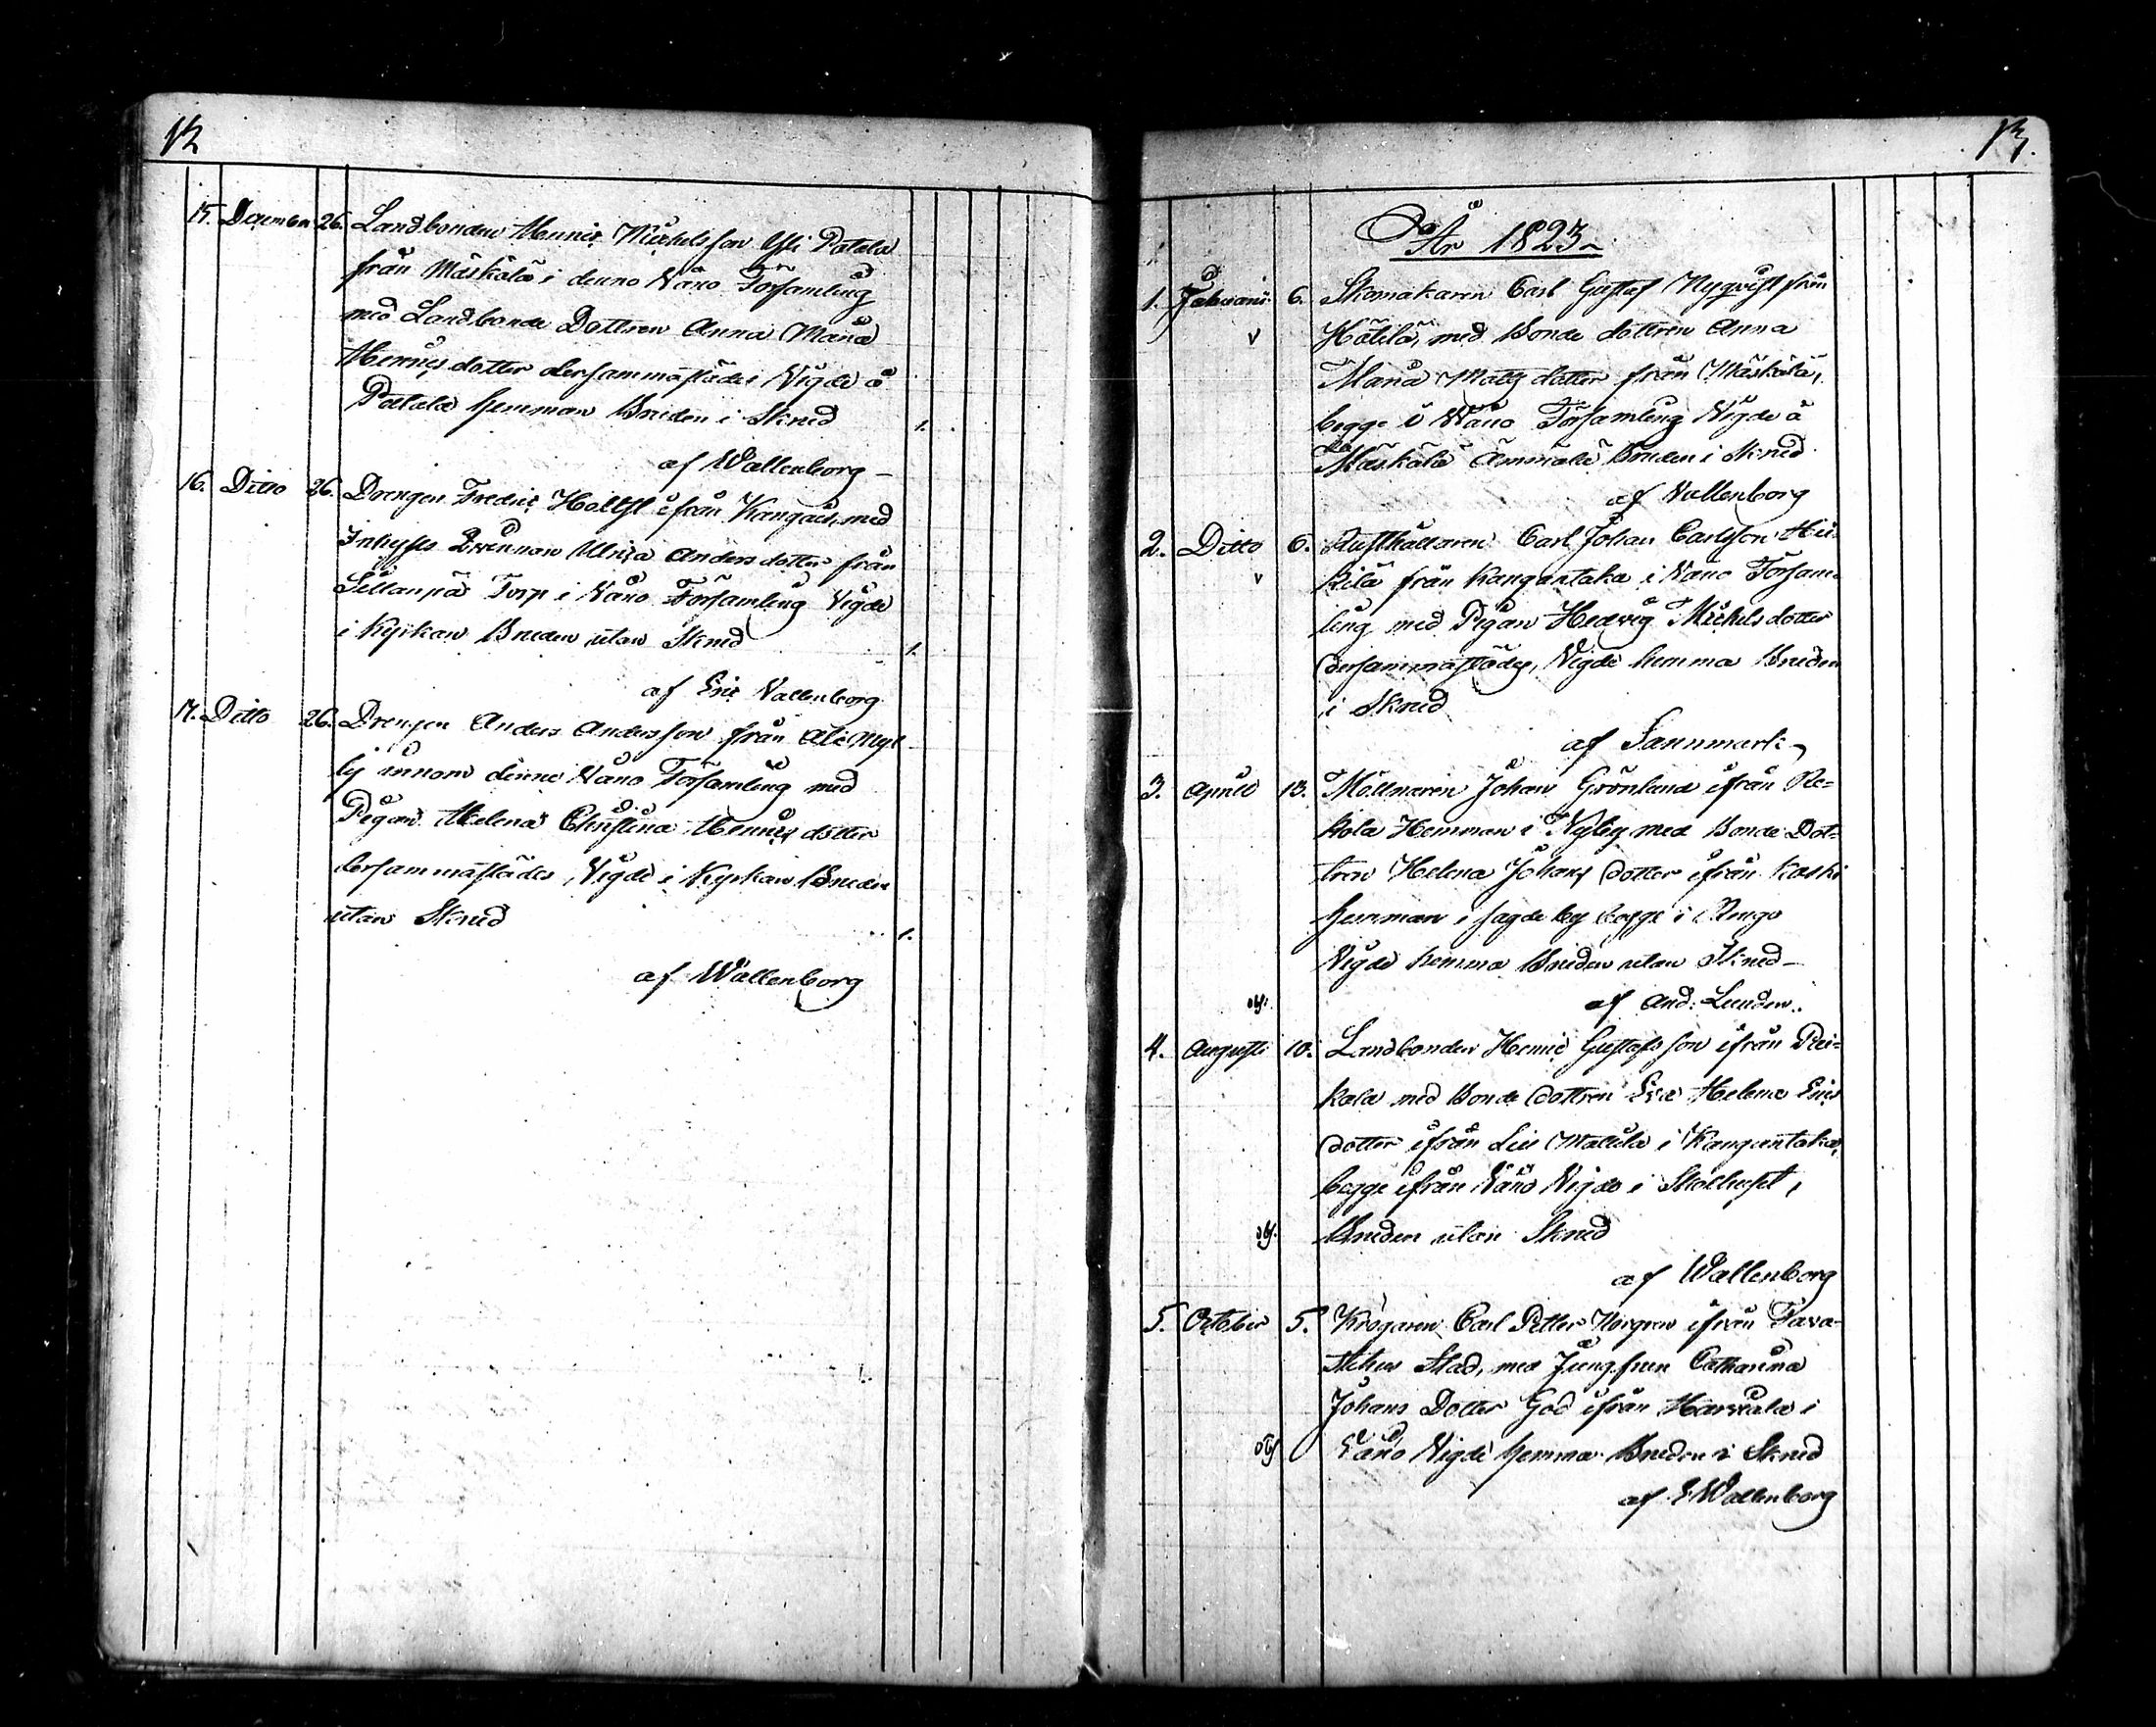 12
15. December 26. Landbonden Henric Michelsson Yli Patala
från Mäskälä i denna Wåno Församling
med Landbonde Dottren Anna Maria
Henrics dotter dersammastädes Vigde å
Patala hemman Bruden i Skrud 1.
af Wallenborg
16. Ditto 26. Drengen Fredric Holtst ifrån Kangais, med
Inhyses Qvinnan Ulrica Anders dotter från
Sillanpä Torp i Wåno Församling Vigde
i Kyrkan Bruden utan Skrud 1.
af Eric Vallenborg
17. Ditto 26. Drengen Anders Andersson från Ali Myl
by innom denne Wåno Församling med
Pigan Helena Christina Henrics dotter
dersammastädes, Vigde i Kyrkan Bruden
utan Skrud 1.
af Wallenborg
13.
År 1823
1. Februarii 6. Skomakaren Carl Gustaf Nyqvist från
v Hätilä, med Bonde dottren Anna
Maria Matts dotter från Mäskälä,
begge i Wåno Församling Vigde å
Mäskälä Ämmälä Bruden i Skrud
af Vallenborg
2. Ditto 6. Rusthållaren Carl Johan Carlsson Hei-
v kilä från Kangantaka i Wåno Försam-
ling med Pigan Hedvig Michels dotter
dersammastädes, Vigde hemma Bruden
i Skrud
af Sannmark
3. Aprill 13. Möllnaren Johan Grönlund ifrån Re-
kola Hemman i Nyby med Bonde Dot-
tren Helena Johans dotter ifrån Kaski
hemman i sagde by begge i Rengo
Vigde hemma Bruden utan Skrud
obs: af And: Lunden.
4. Augusti 10. Landbonden Henric Gustafsson ifrån Pei-
kola med Bonde dottren Eva Helena Erics
dotter ifrån Matila i Kangantaka,
begge ifrån Wåno Vigde i
obs. Bruden utan Skrud
af Wallenborg
5. October 5. Krögaren Carl Petter Norgren ifrån Tava-
stehus Stad, med Jungfrun Catharina
Johans Dotter God ifrån Harviala i
obs Våno Vigde hemma Bruden i Skrud
af E Wallenborg